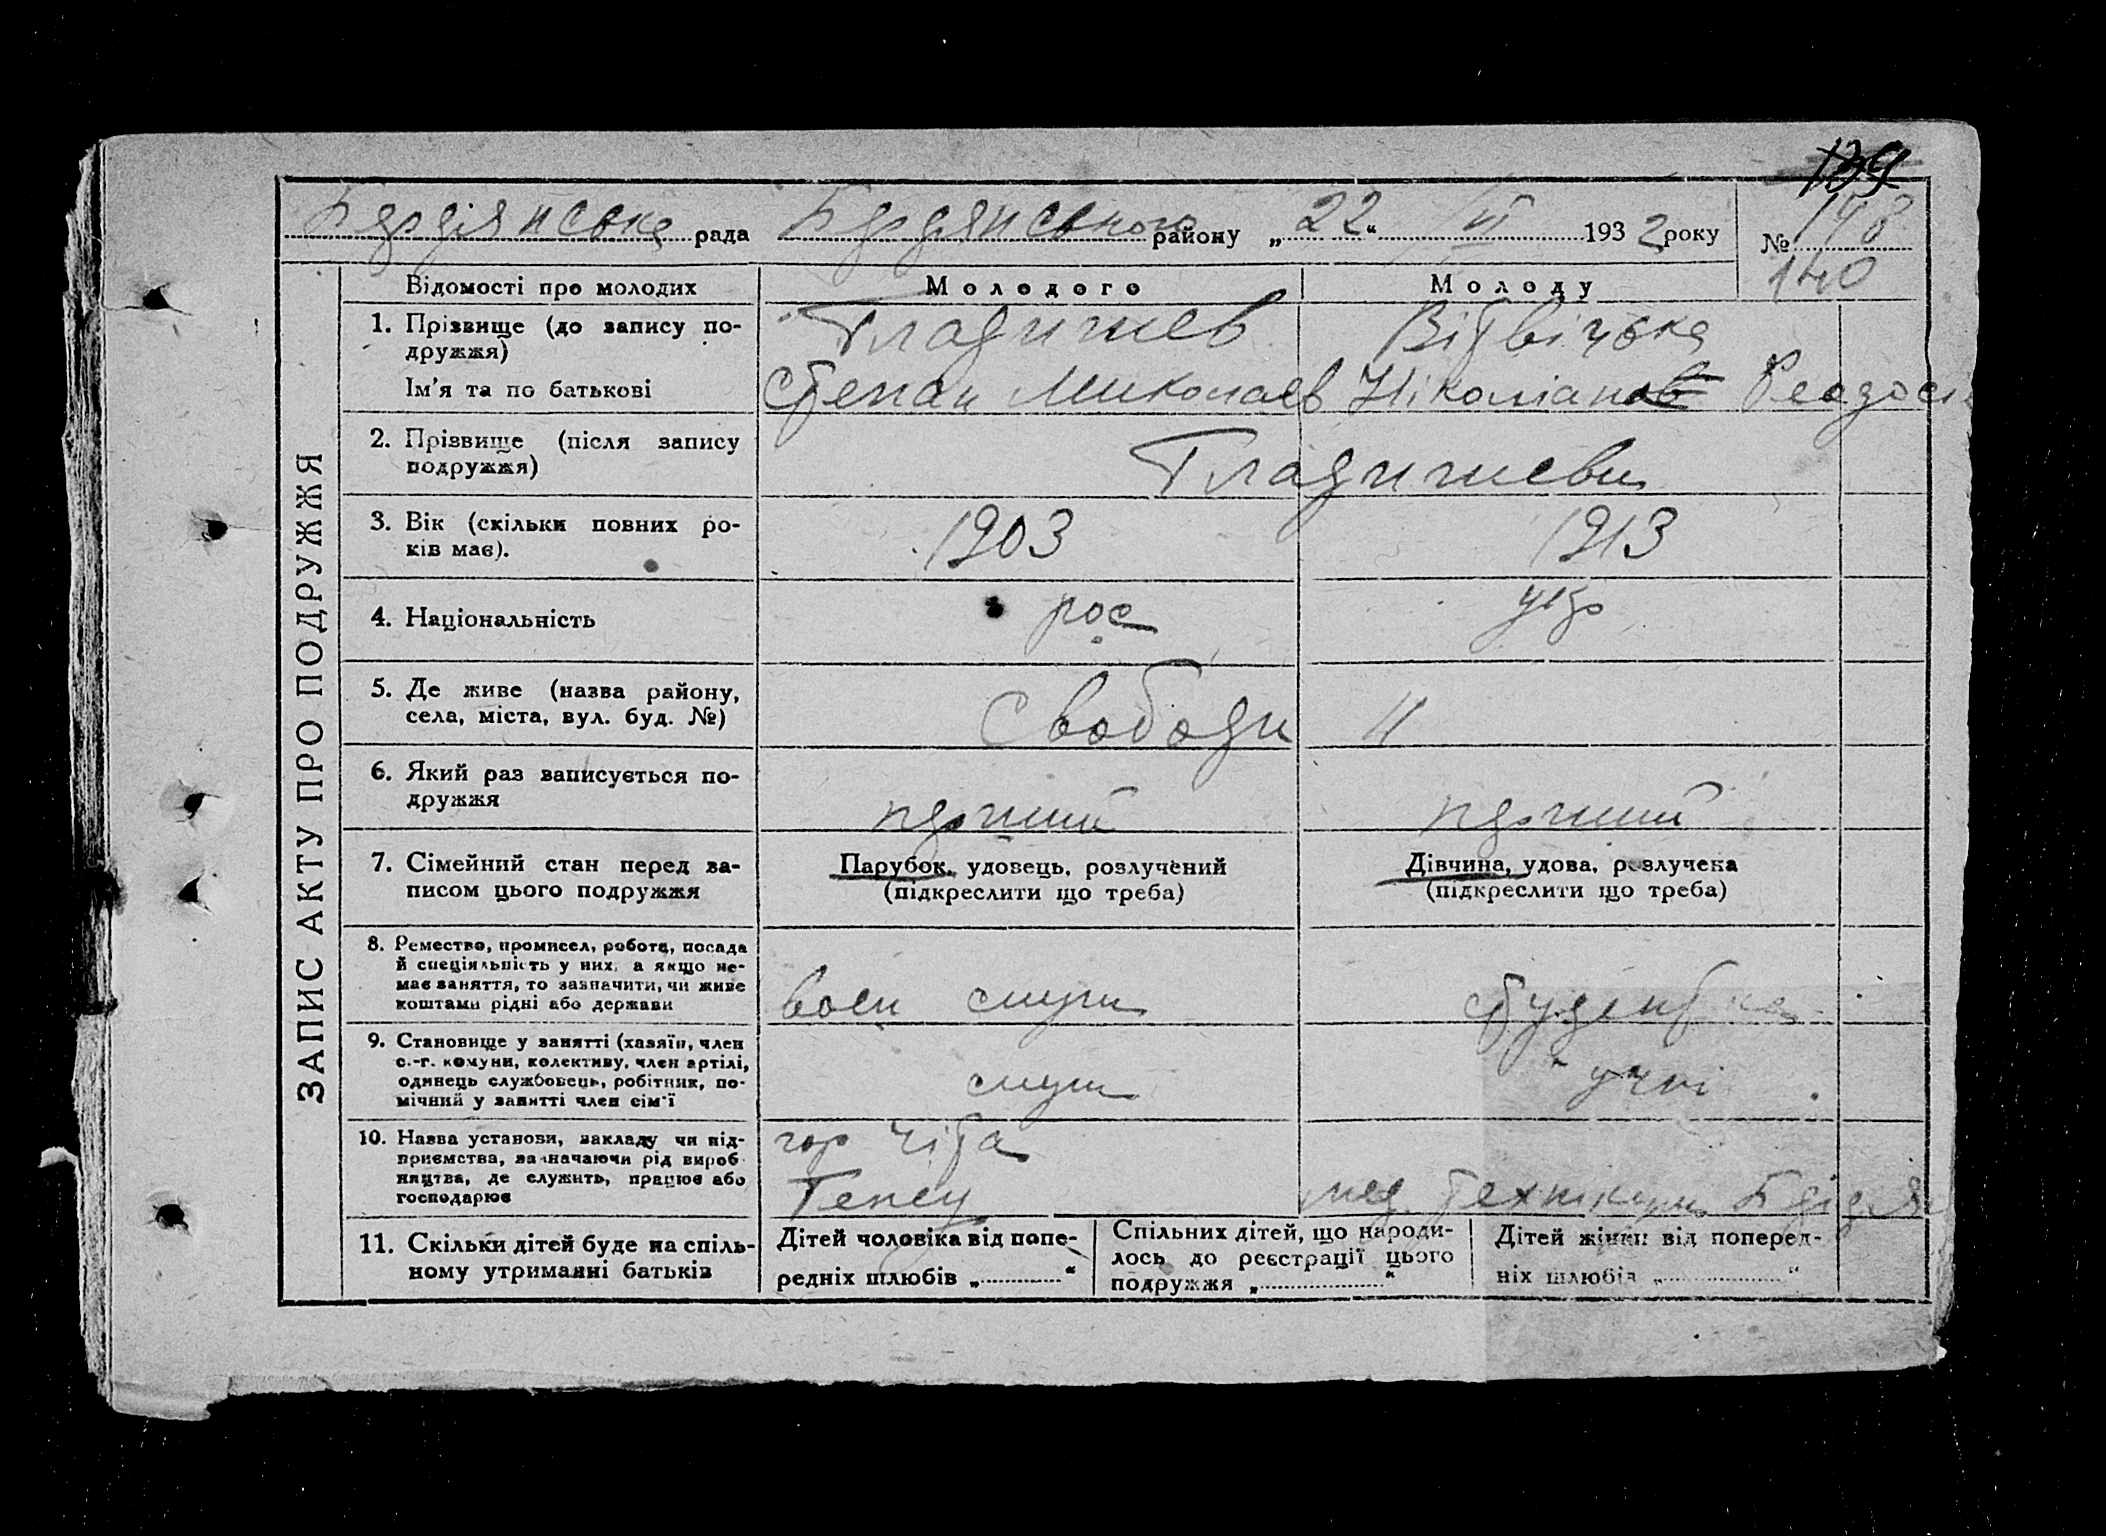 139
Бердянська рада Бердянського району „22“ VI 1932 року № 148
140
ЗАПИС АКТУ ПРО ПОДРУЖЖЯ
Відомості про молодих Молодого Молоду
1. Прізвище (до запису по-
дружжя) Гладишев Відвічська
Ім'я та по батькові Степан Миколаєв Ніколіанов Феодосі
2. Прізвище (після запису
подружжя) Гладишеви
3. Вік (скільки повних ро-
ків має). 1903 1913
4. Національність рос укр
5. Де живе (назва району,
села, міста, вул. буд. №) Свободи 11
6. Який раз записується по-
дружжя перший перший
7. Сімейний стан перед за-
писом цього подружжя
Парубок, удовець, розлучений
(підкреслити що треба)
Дівчина, удова, розлучена
(підкреслити що треба)
8. Ремество, промисел, робота, посада
й спеціяльність у них, а якщо не-
має заняття, то зазначити, чи живе
коштами рідні або держави
воен служ студентка
9. Становище у занятті (хазяїн, член
с.-г. комуни, колективу, член артілі,
одинець службовець, робітник, по-
мічний у занятті член сім'ї
служ учні
10. Назва установи, закладу чи під-
приємства, зазначаючи рід вироб-
ництва, де служить, працює або
господарює
гор Чіта
мед. технікум
11. Скільки дітей буде на спіль-
ному утриманні батьків
Дітей чоловіка від попе-
редніх шлюбів „ “
Спільних дітей, що народи-
лось до реєстрації цього
подружжя „ “
Дітей жінки від поперед-
ніх шлюбів „ “